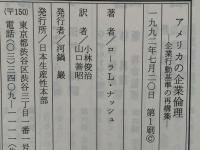 アメリカの企業倫理
企業行動基準の再構築
一九九二年七月二〇日 第1刷©
著者/ローラL・ナッシュ
訳者/小林俊治
山口善昭
発行者/河鍋 巖
発行所/日本生産性本部
(〒150) 東京都渋谷区渋谷三丁目一番一号
電話〇三(三四〇九)一一一